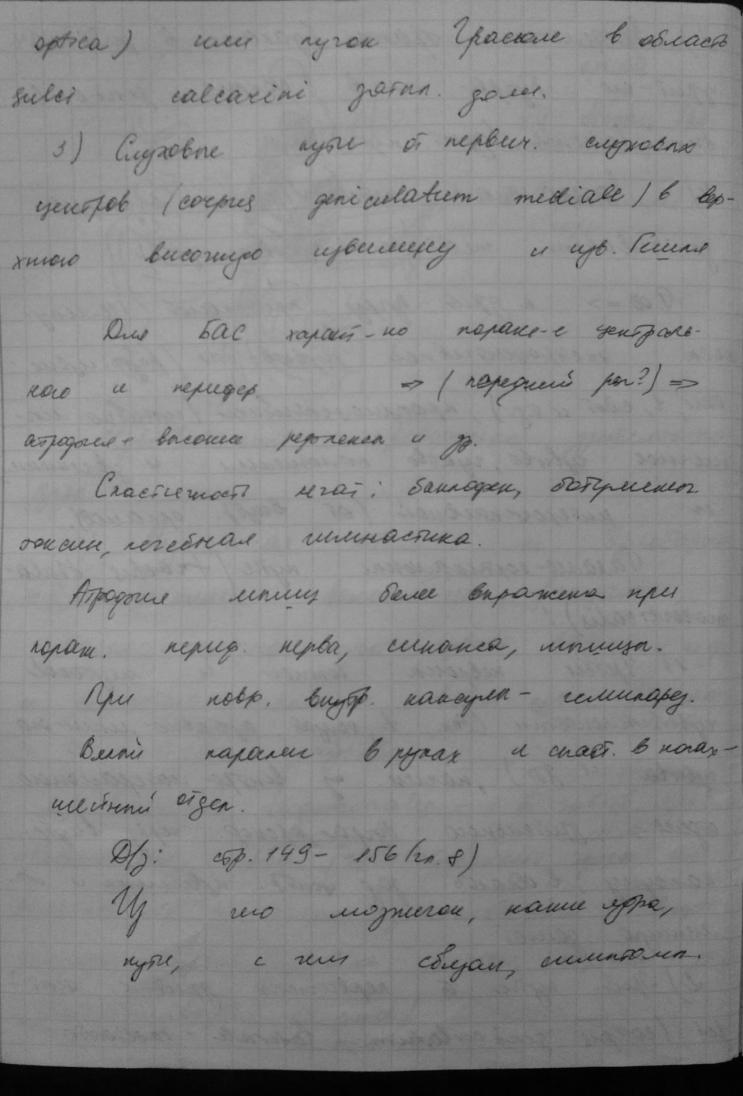 optica) или пучок Грасиоле в область
sulci calcarini затыл. доли.
3) Слуховые пути от первич. слуховых
центров (corpus geniculatum mediale) в вер-
хнюю височную извилину и изв. Гешля
Для БАС характ-но пораже-е централь-
ного и перифер => (передний рог?) =>
атрофия + высокие рефлексы и др.
Спастичность лечат: баклофен, ботулинист
токсин, лечебная гимнастика.
Атрофия мышц более выражена при
пораж. периф. нерва, синапса, мышцы.
При повр. внутр. капсулы - гемипарез.
Вялый паралич в руках и спаст. в ногах -
шейный отдел.
D/з: стр. 149 - 156 (гл. 8)
Из чего мозжечок, какие ядра,
пути, с чем связан, симптомы.